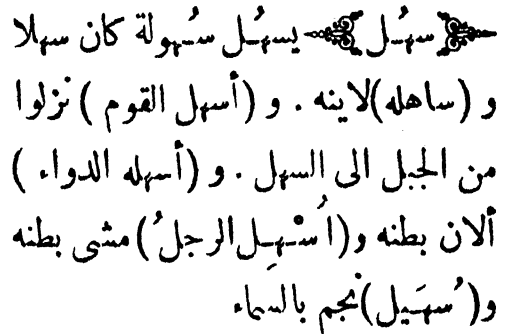 سهُل يسهُل سُهولة كان سهلا
و (ساهله) لاينه . و (أسهل القوم) نزلوا
من الجبل الى السهل . و (أسهله الدواء)
ألان بطنه و (اُسْهِل الرجلُ) مشى بطنه
و (سُهَيل) نجم بالسماء